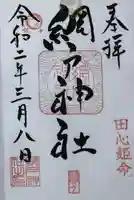 奉拝
田心姫命
神社
令和二年三月八日